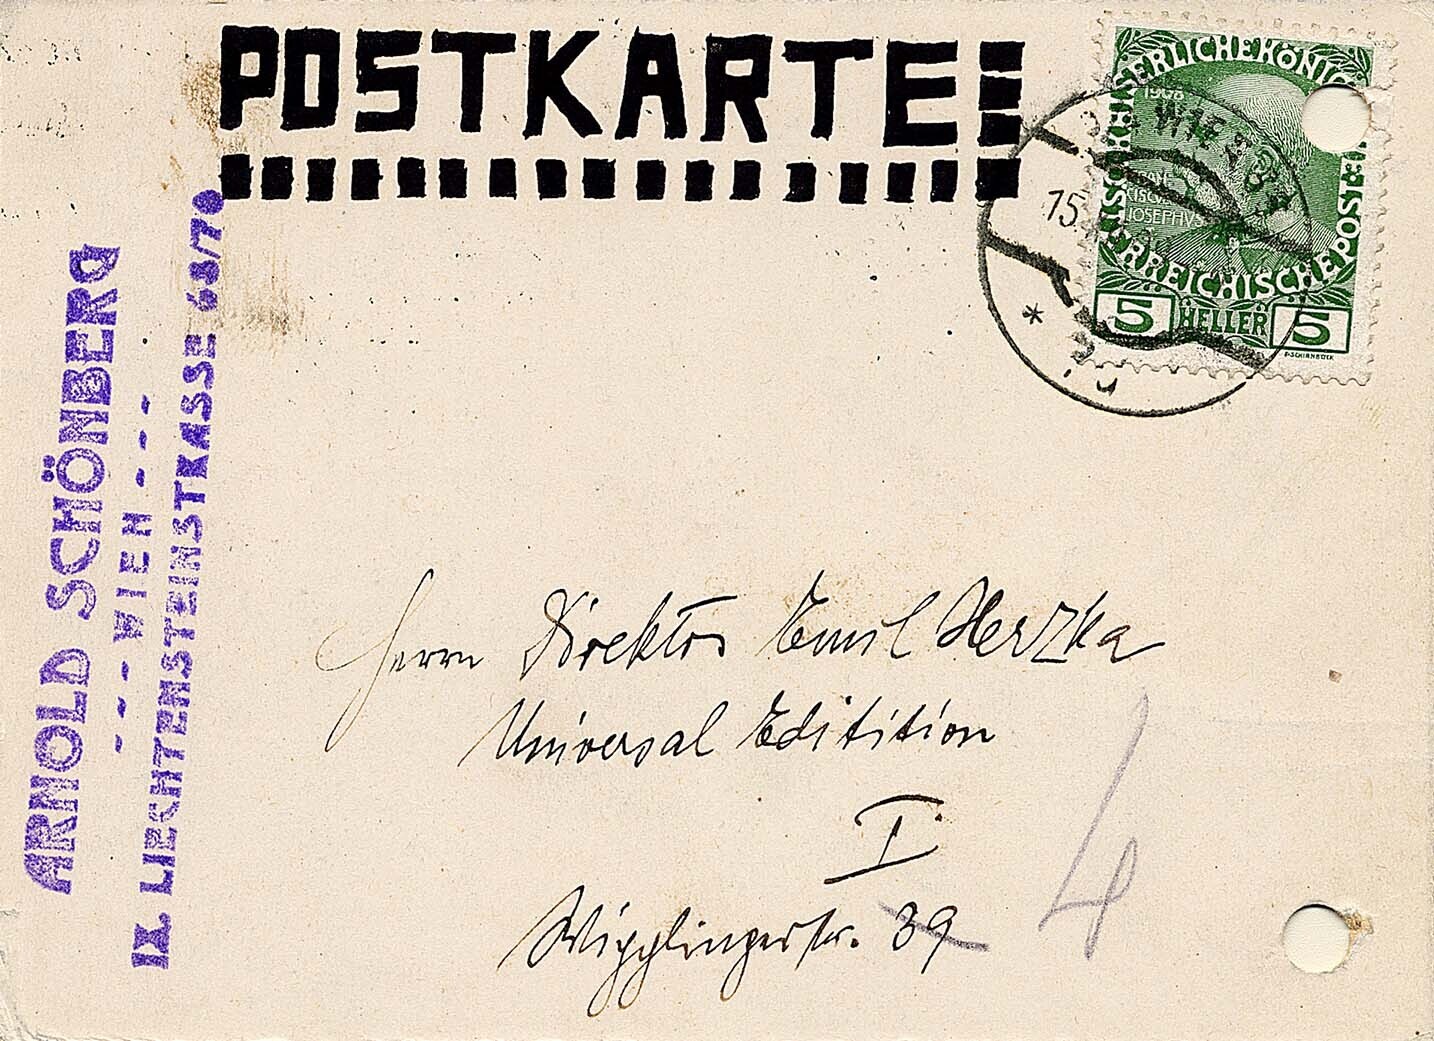 POSTKARTE
KAISERLICHE KÖNIGLICHE ÖSTERREICHISCHE POST
1908
IOSEPHVS
5 HELLER 5
WIEN
15
ARNOLD SCHÖNBERG
--- WIEN ---
IX. LIECHTENSTEINSTRASSE 68/70
Herrn Direktor Emil Herzka
Universal Editition
I
Wipplingerstr. 39
4